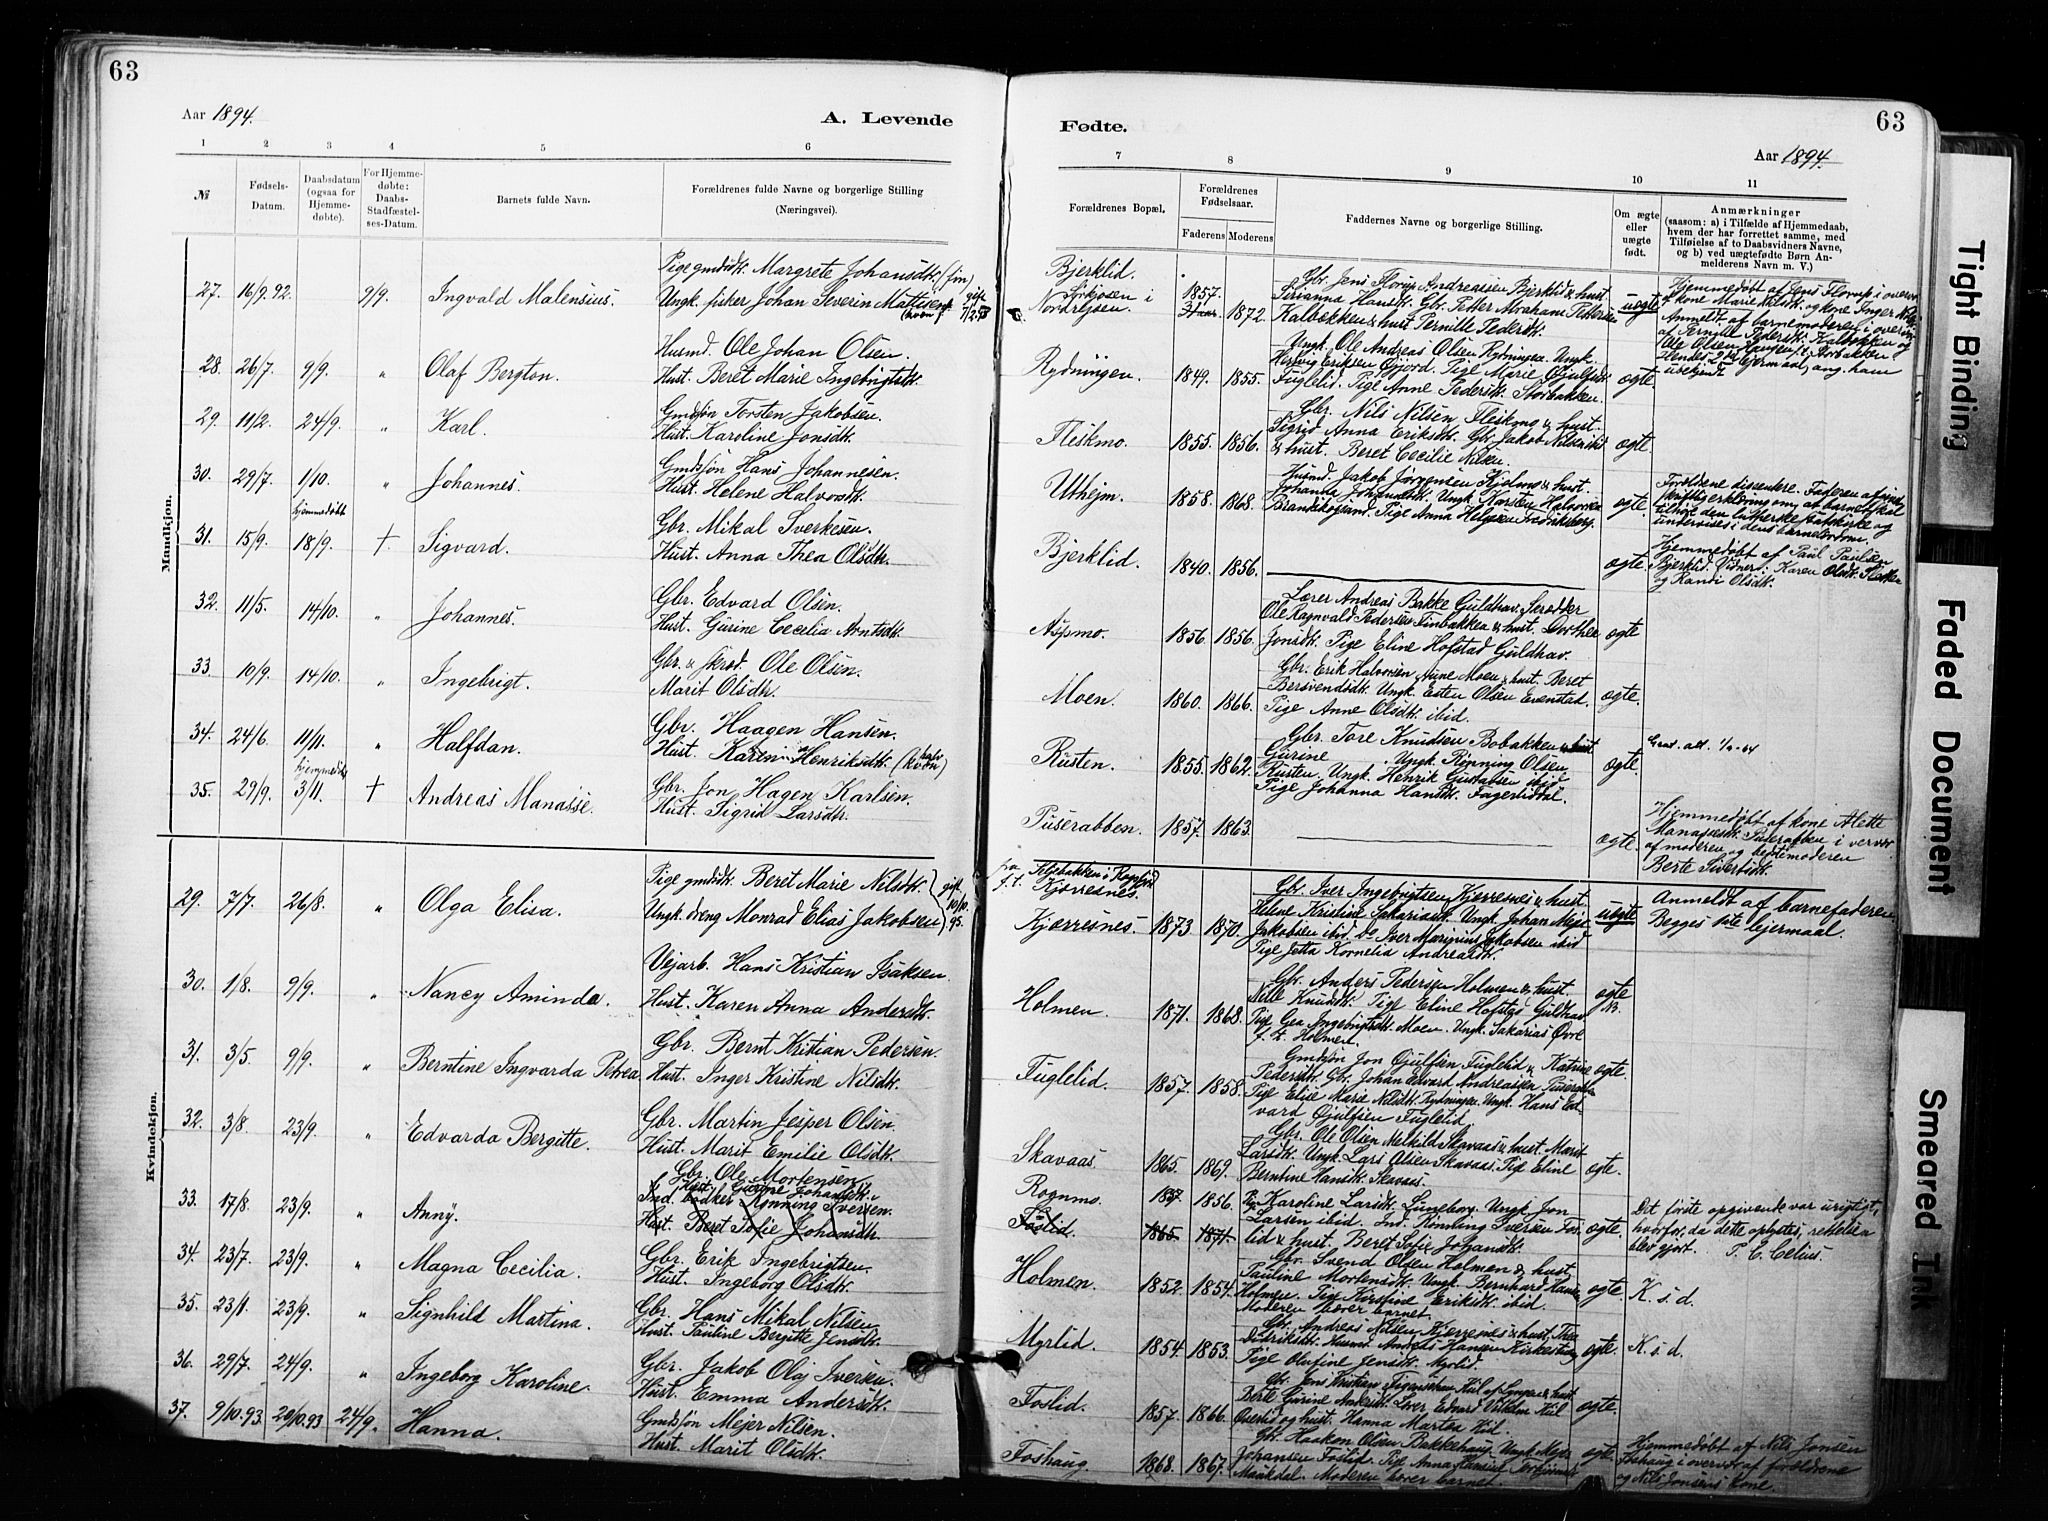 63
Aar 1894.
A. Levende
1 2 3 4 5 6
№
Fødsels-Datum.
Daabsdatum (ogsaa for Hjemmedøbte).
For Hjemmedøbte: Daabs-Stadfæstelses-Datum.
Barnets fulde Navn.
Forældrenes fulde Navne og borgerlige Stilling (Næringsvei).
Mandkjøn.
Pige gmdsdtr. Margrete Johansdtr. (fin)
27. 16/9. 92. 9/9. Ingvald Malensius. Ungk. fisker Johan Severin Mathisen
Husmd. Ole Johan Olsen.
28. 26/7. 9/9. " Olaf Bergton. Hust. Beret Marie Ingebrigtsdtr.
Gmdsøn Torsten Jakobsen.
29. 11/2. 24/9. " Karl. Hust. Karoline Jonsdtr.
Gmdsøn Hans Johannesen.
30. 29/7. 1/10. " Johannes. Hust. Helene Halvorsdtr.
hjemmedøbt
Gbr. Mikal Sverkesen.
31. 15/9. 18/9. + Sigvard. Hust. Anna Thea Olsdtr.
Gbr. Edvard Olsen.
32. 11/5. 14/10. " Johannes. Hust. Gurine Cecelia Arntsdtr.
Gbr. & skrød. Ole Olsen.
33. 10/9. 14/10. " Ingebrigt. Marit Olsdtr.
Gbr. Haagen Hansen.
34. 24/6. 11/11. " Halfdan. Hust. Karen Henriksdtr. (halv kvæn)
hjemmedøbt
Gbr. Jon Hagen Karlsen.
35. 29/9. 3/11. + Andreas Manasse. Hust. Sigrid Larsdtr.
Kvindekjøn.
Pige gmdsdtr. Beret Marie Nilsdtr. gift 10/10. 95.
29. 7/7. 26/8. " Olga Elisa. Ungk. dreng Monrad Elias Jakobsen
Vejarb. Hans Kristian Isaksen.
30. 1/8. 9/9. " Nancy Aminda. Hust. Karen Anna Andersdtr.
Gbr. Bernt Kristian Pedersen.
31. 3/5. 9/9. " Berntine Ingvarda Petrea Hust. Inger Kristine Nilsdtr.
Gbr. Martin Jesper Olsen.
32. 3/8. 23/9. " Edvarda Bergitte. Hust. Marit Emilie Olsdtr.
Gbr. Ole Mortensen
Hust. Gurine Johansdtr.
Ind. bødker Rønning Iversen.
33. 17/8. 23/9. " Anny. Hust. Beret Sofie Johansdtr.
Gbr. Erik Ingebrigtsen.
34. 23/7. 23/9. " Magna Cecilia. Hust. Ingeborg Olsdtr.
Gbr. Hans Mikal Nilsen
35. 23/1. 23/9. " Signhild Martina. Hust. Pauline Bergitte Jensdtr.
Gbr. Jakob Olaj Iversen
36. 29/7. 24/9. " Ingeborg Karoline. Hust. Emma Andersdtr.
Gmdsøn Mejer Nilsen.
37. 9/10. 93. 20/10. 93 24/9. Hanna. Hust. Marit Olsdtr.
63
Fødte.
Aar 1894.
7 8 9 10 11
Forældrenes Bopæl.
Forældrenes Fødselsaar.
Faderens Moderens
Faddernes Navne og borgerlige Stilling.
Om ægte eller uægte født.
Anmærkninger
(saasom: a) i Tilfælde af Hjemmedaab, hvem der har forrettet samme, med Tilføielse af to Daabsvidners Navne, og b) ved uægtefødte Børn Anmelderens Navn m. V.)
Bjerklid.
Sørkjosen i Nordrejsen. 1857. 1872. uægte
Gbr. Jens Florup Andreasen Bjerklid & hust.
Kalbækken & hust. Pernille Pedersdtr.
Rydningen. 1849. 1855. ægte.
Ungk. Ole Andreas Olsen Rydningen. Ungk.
Fuglelid. Pige Anne Pedersdtr. Storbakken.
Fleskmo. 1855. 1856. ægte.
Gbr. Nils Nilsen Fleskmo & hust.
Sigrid Anna Eriksdtr. Gbr. Jakob
& hust. Beret Cecilie Nilsen.
Uthejm. 1858. 1868. ægte.
Husmd. Jakob Jørgensen Kjolmo & hust.
Forældrene dissentere. Faderen afgivet
skriftlig erklæring om, at barnet skal
tilhøre den lutherske statskirke og
undervises i dens barnelærdom.
Bjerklid. 1840. 1856. ægte.
Hjemmedøbt af Paul Paulsen
Bjerklid. Vidner: Karen Olsdtr.
og Randi Olsdtr.
Aspmo. 1856. 1856. ægte
Lærer Andreas Bakke Guldhav. Skrædder
Ole Ragnvald Pedersen Finbakken & hust. Dorthea
Jonsdtr. Pige Eline Hofstad Guldhav.
Moen. 1860. 1866. ægte.
Gbr. Erik Halvorsen Moen & hust. Beret
Bersvendsdtr. Ungk. Esten Olsen Evenstad.
Pige Anne Olsdtr. ibid.
Rusten. 1855. 1862. ægte.
Gbr. Tore Knudsen Bobakken & hust.
Gurine Ungk. Rønning Olsen
Rusten. Ungk. Henrik Gustafsen ibid
Pige Johanna Hansdtr. Fagerliddal.
Puserabben. 1857. 1863. ægte.
Hjemmedøbt af kone Alette
Manassesdtr. Puserabben i overvær
af moderen og bestemoderen
Berte Sivertsdtr.
Kjerresnes.
Kjærresnes. 1873 1870. uægte
Gbr. Iver Ingebrigtsen Kjerresnes & hust.
Helene Kristine Sakariasdtr. Ungk. Johan Mejer
Jakobsen ibid. Do Iver Marsinius Jakobsen ibid
Pige Jetta Kornelia Andreasdtr.
Anmeldt af barnefaderen
Begges 1ste lejermaal.
Holmen. 1871. 1868. ægte
Gbr. Anders Pedersen Holmen & hust
Nille Knudsdtr. Pige Eline Hofstad Guldhav
Pige Gea Ingebrigtsdtr. Moen. Ungk. Sakarias
f. t. Holmen
Fuglelid. 1857. 1858. ægte.
Gmdsøn Jon Øjulfsen Fuglelid & Katrine
Pedersdtr. Gbr. Johan Edvard Andreassen
Pige Elise Marie Nilsdtr. Rydningen. Ungk. Hans Edvard Øjulfsen Fuglelid.
Skavaas. 1865. 1869. ægte.
Gbr. Ole Olsen Melkild Skavaas & hust. Marit
Larsdtr. Ungk. Lars Olsen Skavaas. Pige Eline
Berntine Hansdtr. Skavaas.
Rognmo. 1857 1856.
Foslid. 1865 1871. ægte.
Pige Karoline Larsdtr. Luneborg. Ungk. Jon
Larsen ibid. Ind. Rønning Iversen Foslid & hust. Beret Sofie Johansdtr.
Det første opgivende var urigtigt,
hvorfor, da dette oplystes, rettelsen
blev gjort. P. C. Celius.
Holmen. 1852. 1854. ægte. K. s. d.
Gbr. Svend Olsen Holmen & hust
Pauline Mortensdtr. Ungk. Bernhard
Holmen. Pige Kirstine Eriksdtr. ibid.
Moderen bærer barnet.
Myrlid. 1854. 1853. ægte. K. s. d.
Gbr. Andreas Nilsen Kjærresnes & hust. Thea
Didriksdtr. Husmd. Anders Hansen
Pige Olufine Jensdtr. Myrlid.
Foslid. 1857. 1866. ægte.
Berte Gurine Andersdtr. Lærer Edvard Vilhelm Kiil
Øverlid og hust. Hanna Martea Kiil.
Foshaug. 1868. 1867. ægte.
Gbr. Haakon Olsen Bakkehaug. Ungk.
Johansen Foslid. Pige Anna
Maalsdal. Moderen bærer barnet.
Hjemmedøbt af Nils Jonsen
Foshaug i overvær af forældrene
og Nils Jonsens kone.
Tight Binding
Faded Document
Smeared Ink